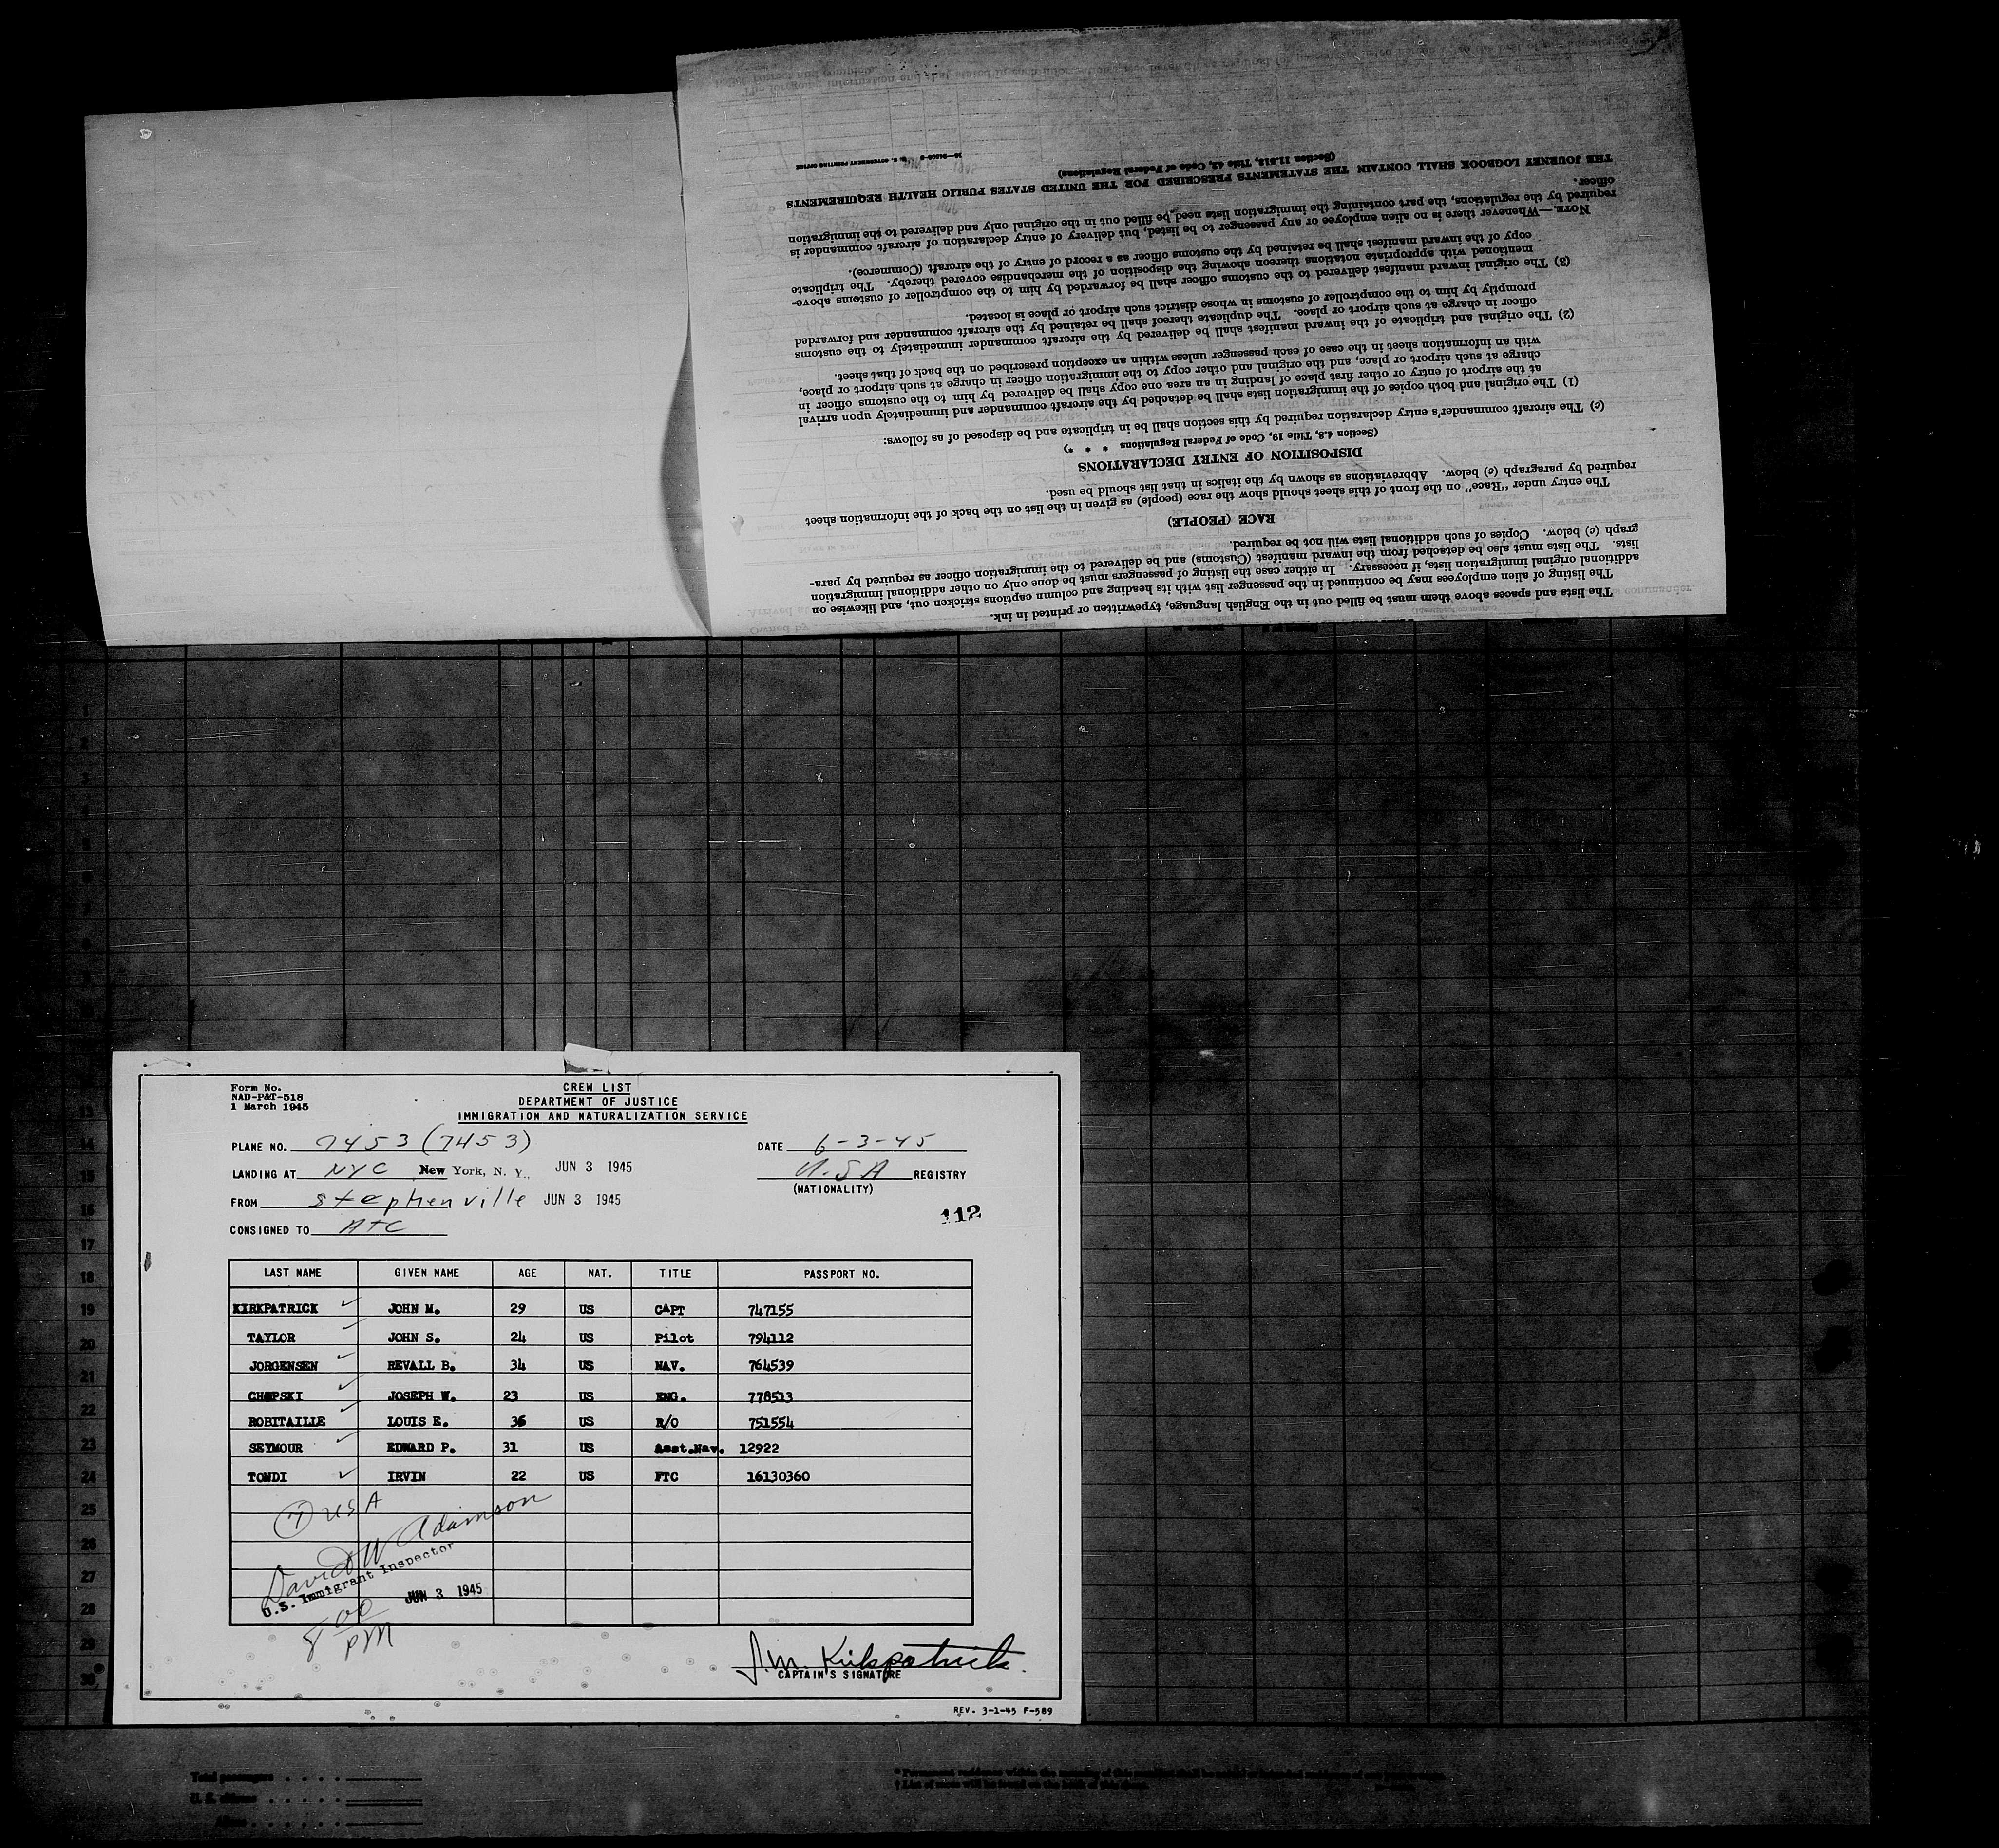 The lists and spaces above them must be filled out in the English language, typewritten or printed in ink.
The listing of alien employees may be continued in the passenger list with its heading and column captions stricken out, and likewise on
additional original immigration lists, if necessary. In either case the listing of passengers must be done only on other additional immigration
lists. The lists must also be detached from the inward manifest (Customs) and be delivered to the immigration officer as required by para-
graph (c) below. Copies of such additional lists will not be required.
RACE (PEOPLE)
The entry under "Race" on the front of this sheet should show the race (people) as given in the list on the back of the information sheet
required by paragraph (c) below. Abbreviations as shown by the italics in that list should be used.
DISPOSITION OF ENTRY DECLARATIONS
(Section 4.8, Title 19, Code of Federal Regulations * * *)
(c) The aircraft commander's entry declaration required by this section shall be in triplicate and be disposed of as follows:
(1) The original and both copies of the immigration lists shall be detached by the aircraft commander and immediately upon arrival
at the airport of entry or other first place of landing in an area one copy shall be delivered by him to the customs officer in
charge at such airport or place, and the original and other copy to the immigration officer in charge at such airport or place,
with an information sheet in the case of each passenger unless within an exception prescribed on the back of that sheet.
(2) The original and triplicate of the inward manifest shall be delivered by the aircraft commander immediately to the customs
officer in charge at such airport or place. The duplicate thereof shall be retained by the aircraft commander and forwarded
promptly by him to the comptroller of customs in whose district such airport or place is located.
(3) The original inward manifest delivered to the customs officer shall be forwarded by him to the comptroller of customs above-
mentioned with appropriate notations thereon showing the disposition of the merchandise covered thereby. The triplicate
copy of the inward manifest shall be retained by the customs officer as a record of entry of the aircraft (Commerce).
NOTE.—Whenever there is no alien employee or any passenger to be listed, but delivery of entry declaration of aircraft commander is
required by the regulations, the part containing the immigration lists need be filled out in the original only and delivered to the immigration
officer.
THE JOURNEY LOGBOOK SHALL CONTAIN THE STATEMENTS PRESCRIBED FOR THE UNITED STATES PUBLIC HEALTH REQUIREMENTS
(Section 11.513, Title 42, Code of Federal Regulations)
U. S. GOVERNMENT PRINTING OFFICE
Form No.
NAD-P&T-518
1 March 1945
CREW LIST
DEPARTMENT OF JUSTICE
IMMIGRATION AND NATURALIZATION SERVICE
PLANE NO. 7453 (7453) DATE 6-3-45
LANDING AT NYC New York, N. Y., JUN 3 1945 U.S.A REGISTRY
(NATIONALITY)
FROM Stephenville JUN 3 1945
112
CONSIGNED TO ATC
LAST NAME GIVEN NAME AGE NAT. TITLE PASSPORT NO.
KIRKPATRICK JOHN M. 29 US CAPT 747155
TAYLOR JOHN S. 24 US Pilot 794112
JORGENSEN REVALL B. 34 US NAV. 764539
JOSEPH W. 23 US ENG. 778513
ROBITAILLE LOUIS E. 36 US R/O 751554
SEYMOUR EDWARD P. 31 US Asst.Nav. 12922
TONDI IRVIN 22 US FTC 16130360
(7) USA
David W Adamson
U.S. Immigrant Inspector
JUN 3 1945
8 00
PM
J.M. Kirkpatrick
CAPTAIN'S SIGNATURE
REV. 3-1-45 F-589
13
14
15
16
17
18
19
20
21
22
23
24
25
26
27
28
29
30
Total passengers
U. S. citizens
Aliens